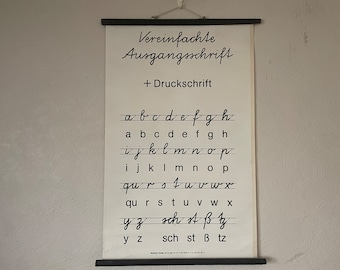 Vereinfachte
Ausgangsschrift
+Druckschrift
a b c d e f g h
a b c d e f g h
i j k l m n o p
i j k l m n o p
qu r s t u v w x
qu r s t u v w x
y z sch st ß tz
y z sch st ß tz